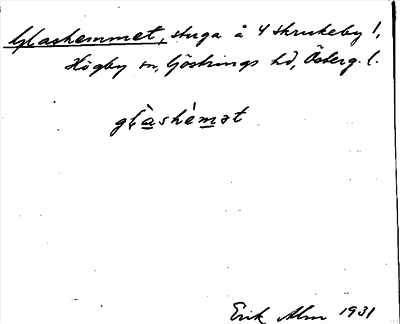 Glashemmet, stuga å 4 Skrukeby 1,
Högby sn, Göstrings hd, Österg. l.
glàshèmət
Erik Alm 1931